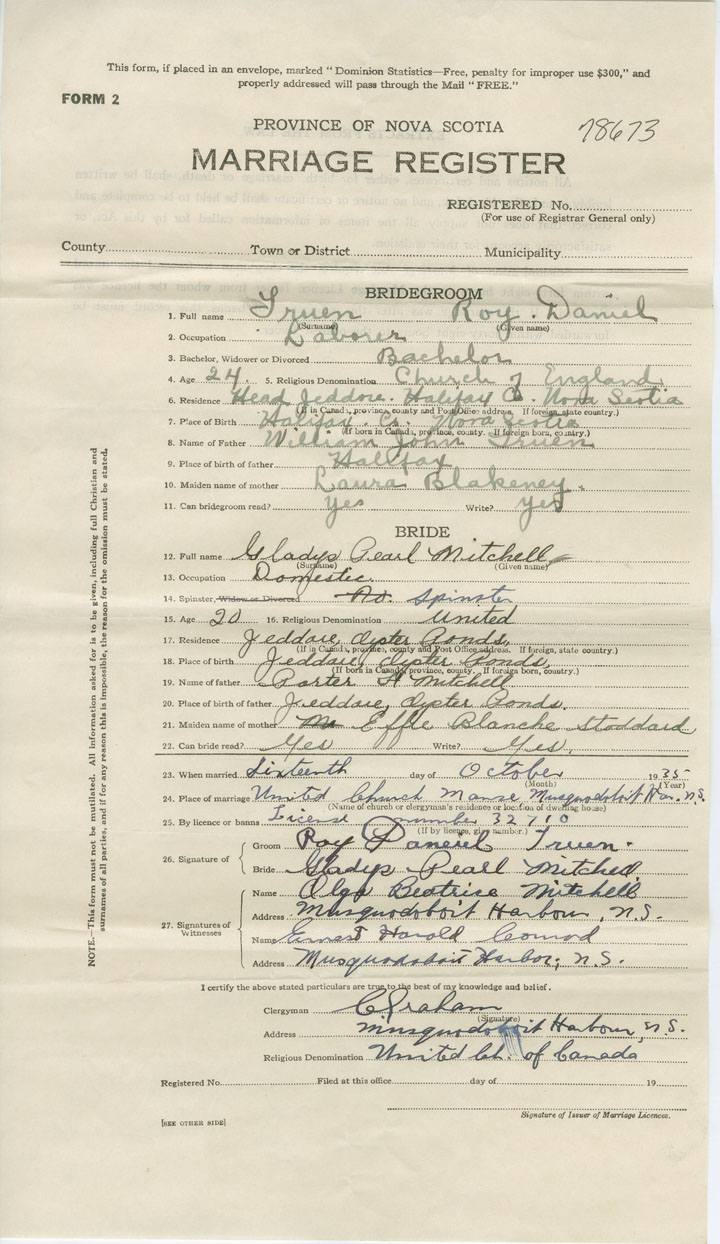 This form, if placed in an envelope, marked "Dominion Statistics—Free, penalty for improper use $300," and
properly addressed will pass through the Mail "FREE."
FORM 2
PROVINCE OF NOVA SCOTIA 78673
MARRIAGE REGISTER
REGISTERED No.
(For use of Registrar General only)
County Town or District Municipality
BRIDEGROOM
1. Full name Truen Roy. Daniel
(Surname) (Given name)
2. Occupation Laborer
3. Bachelor, Widower or Divorced Bachelor
4. Age 24. 5. Religious Denomination Church of England.
6. Residence Head Jeddore. Halifax Co. Nova Scotia
(If in Canada, province, county and Post Office address. If foreign, state country.)
7. Place of Birth Halifax. Co. Nova Scotia
(If born in Canada, province, county. If foreign born, country.)
8. Name of Father William John Truen
9. Place of birth of father Halifax
10. Maiden name of mother Laura Blakeney.
11. Can bridegroom read? Yes Write? Yes
BRIDE
12. Full name Gladys Pearl Mitchell
(Surname) (Given name)
13. Occupation Domestic.
14. Spinster, Widow or Divorced No. Spinster
15. Age 20 16. Religious Denomination United
17. Residence Jeddore, Oyster Ponds,
(If in Canada, province, county and Post Office address. If foreign, state country.)
18. Place of birth Jeddore, Oyster Ponds,
(If born in Canada, province, county. If foreign born, country.)
19. Name of father Porter H Mitchell
20. Place of birth of father Jeddore, Oyster Ponds.
21. Maiden name of mother Effie Blanche Stoddard
22. Can bride read? Yes Write? Yes,
23. When married Sixteenth day of October 1935
(Month) (Year)
24. Place of marriage United Church Manse Musquodoboit Har. N.S.
(Name of church or clergyman's residence or location of dwelling house)
25. By licence or banns License number 32710
(If by licence, give number.)
26. Signature of
Groom Roy Daneiel Truen.
Bride Gladys Pearl Mitchell
27. Signatures of Witnesses
Name Olga Beatrice Mitchell
Address Musquodoboit Harbour, N.S.
Name Ernest Harold Conrod
Address Musquodoboit Harbor, N.S.
I certify the above stated particulars are true to the best of my knowledge and belief.
Clergyman C Graham
(Signature)
Address Musquodoboit Harbour, N.S.
Religious Denomination United Ch. of Canada
Registered No. Filed at this office day of 19
Signature of Issuer of Marriage Licences.
[SEE OTHER SIDE]
NOTE.—This form must not be mutilated. All information asked for is to be given, including full Christian and
surnames of all parties, and if for any reason this is impossible, the reason for the omission must be stated.